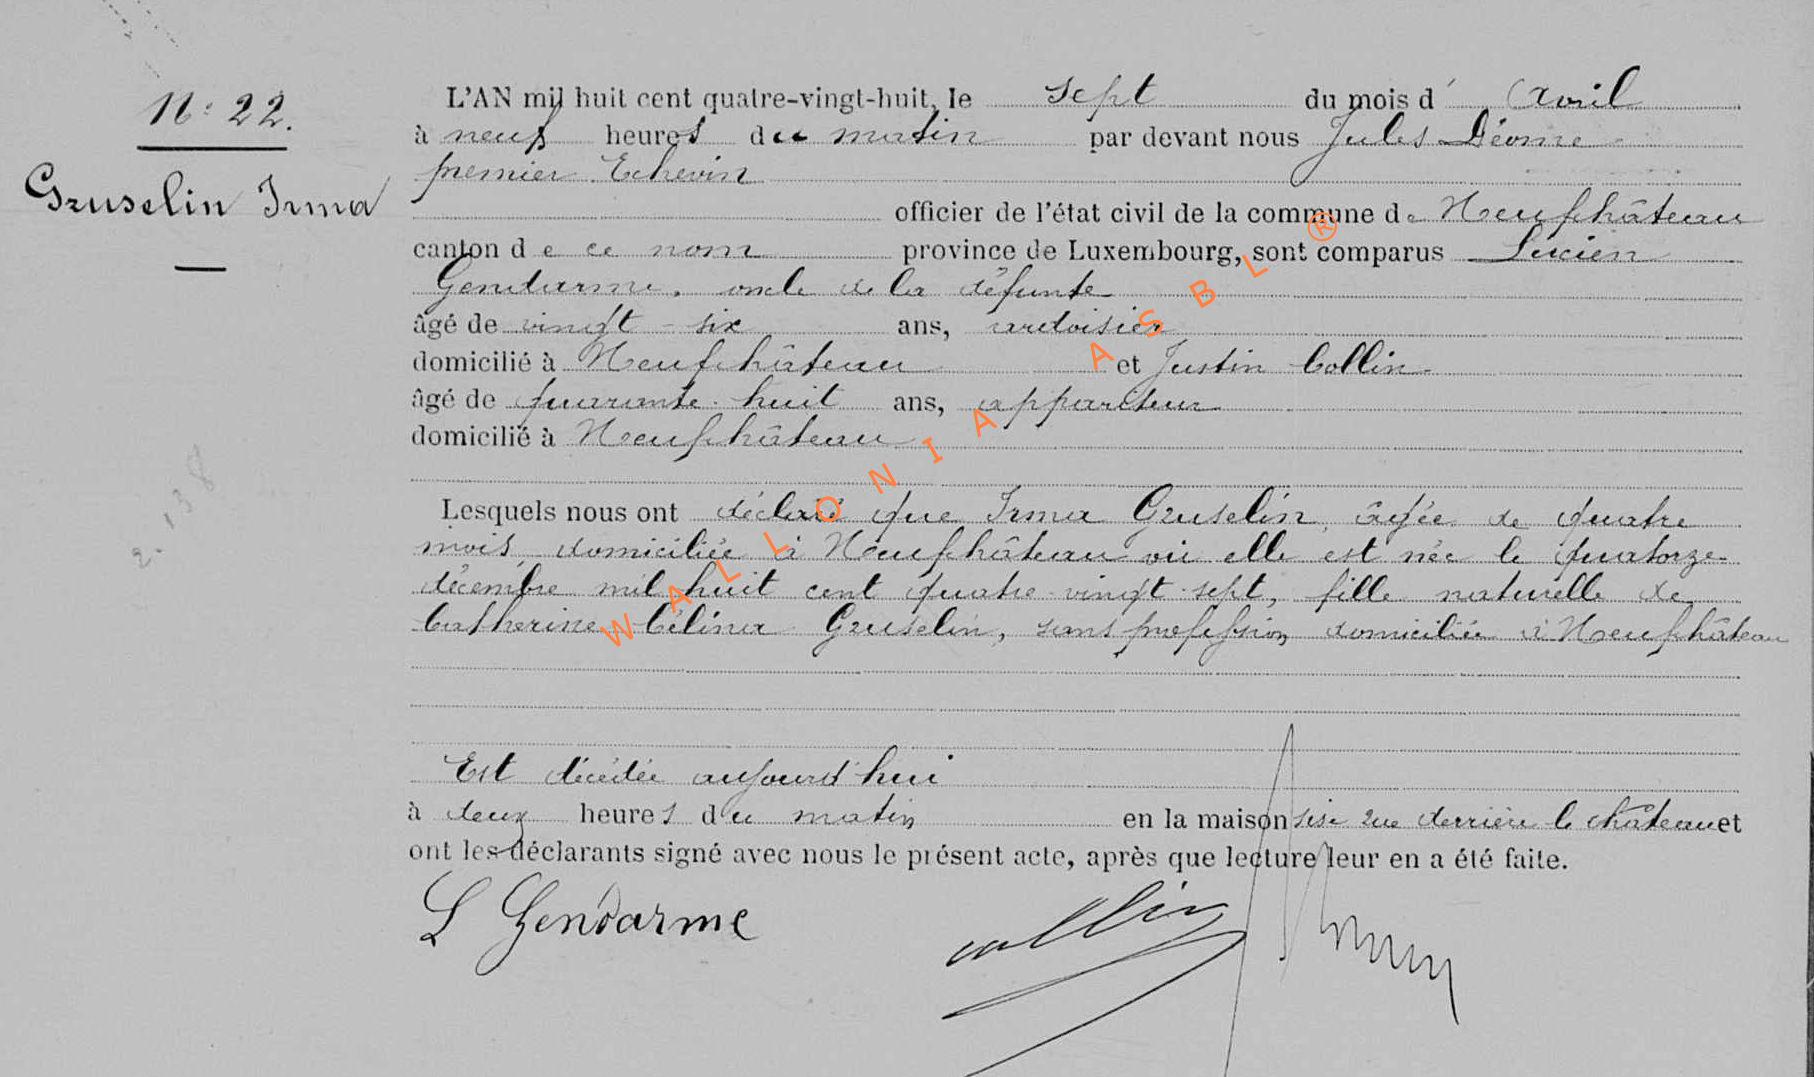 N° 22.
Gruselin Irma
L'AN mil huit cent quatre-vingt-huit, le sept du mois d' Avril
à neuf heures du matin par devant nous Jules Déome
premier Echevin
officier de l'état civil de la commune de Neufchâteau
canton de ce nom province de Luxembourg, sont comparus Lucien
Gendarme, oncle de la défunte
âgé de vingt-six ans, ardoisier
domicilié à Neufchâteau et Justin Collin
âgé de quarante-huit ans, appariteur
domicilié à Neufchâteau
Lesquels nous ont déclaré que Irma Gruselin, âgée de quatre
mois domiciliée à Neufchâteau où elle est née le quatorze
décembre mil huit cent quatre-vingt-sept, fille naturelle de
Catherine Célina Gruselin, sans profession, domiciliée à Neufchâteau
Est décédée aujourd'hui
à deux heures du matin en la maison sise rue derrière le château et
ont les déclarants signé avec nous le présent acte, après que lecture leur en a été faite.
L Gendarme collin
WALLONIA ASBL ®
2-138